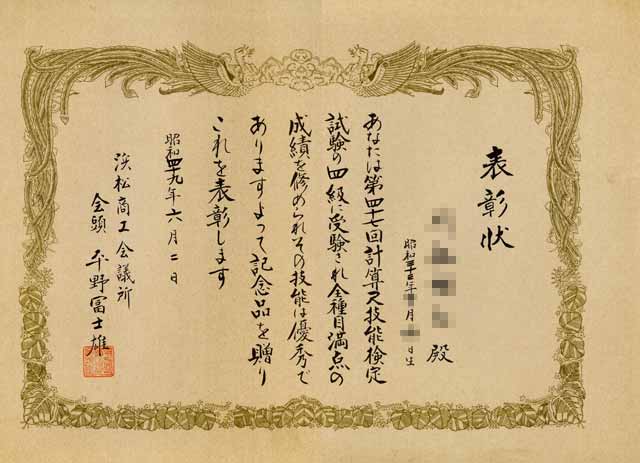 表彰状
殿
昭和三十三年 月 日生
あなたは第四七回計算尺技能検定
試験の四級に受験され全種目満点の
成績を修められその技能は優秀で
ありますよって記念品を贈り
これを表彰します
昭和四十九年六月二日
浜松商工会議所
会頭 平野冨士雄